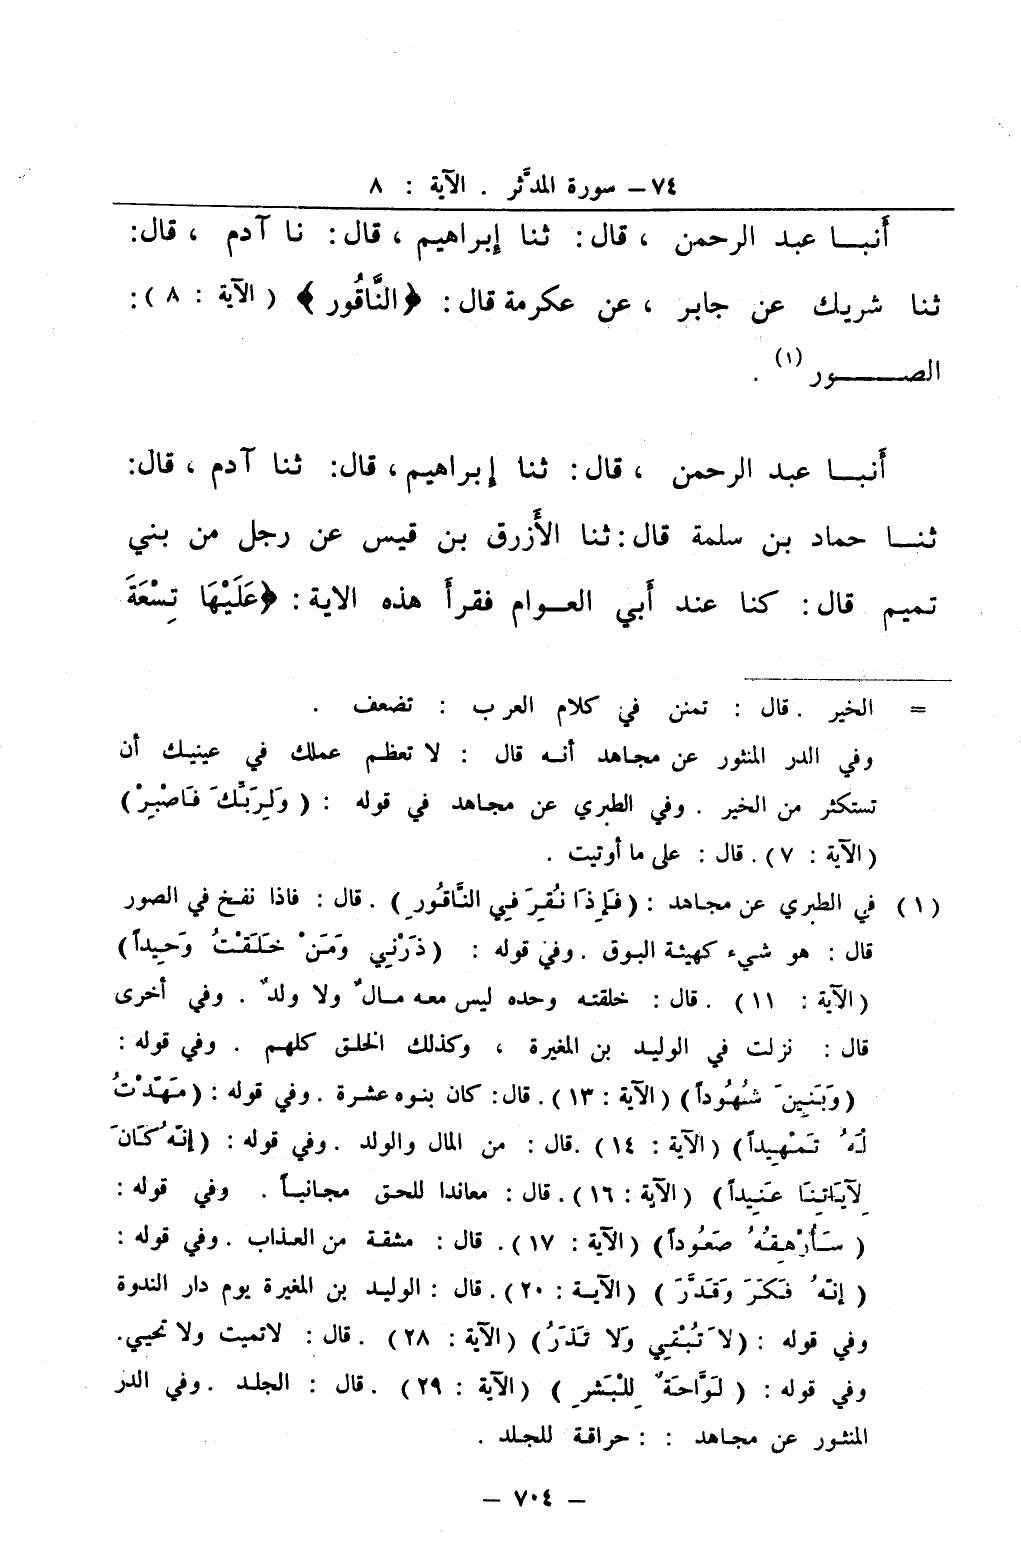 ٧٤ – سورة المدَّثر . الآية : ٨
أَنبـا عبد الرحمن ، قال : ثنا إبراهيم ، قال : نا آدم ، قال:
ثنا شريك عن جابر ، عن عكرمة قال : ﴿ النَّاقُور ﴾ ( الآية : ٨ ) :
الصـــــور (١) .
أَنبـا عبد الرحمن ، قال : ثنا إبراهيم ، قال: ثنا آدم ، قال:
ثنـا حماد بن سلمة قال : ثنا الأَزرق بن قيس عن رجل من بني
تميم قال : كنا عند أَبي العـوام فقرأَ هذه الاية : ﴿ عَلَيْهَا تِسْعَةَ
= الخير . قال : تمنن في كلام العرب : تضعف .
وفي الدر المنثور عن مجاهد أنـه قال : لا تعظـم عملك في عينيك أن
تستكثر من الخير . وفي الطبري عن مجاهد في قوله : ( وَلِرَبِّكَ فَاصْبِرْ )
( الآية : ٧ ) . قال : على ما أوتيت .
( ١ ) في الطبري عن مجاهد : ( فَإِذَا نُقِرَ فِي النَّاقُورِ ) . قال : فاذا نفخ في الصور
قال : هو شيء كهيئة البوق . وفي قوله : ( ذَرْنِي وَمَنْ خَلَقْتُ وَحِيداً )
( الآية : ١١ ) . قال : خلقته وحده ليس معه مـالٌ ولا ولدٌ . وفي أخرى
قال : نزلت في الوليد بن المغيرة ، وكذلك الخلق كلهم . وفي قوله :
( وَبَنِينَ شُهُوداً ) ( الآية : ١٣ ) . قال: كان بنوه عشرة . وفي قوله : ( مَهَّدْتُ
لَهُ تَمْهِيداً ) ( الآية : ١٤ ) .قال : من المال والولد . وفي قوله : ( إِنَّهُ كَانَ
لِآيَاتِنَا عَنِيداً ) ( الآية : ١٦ ) . قال : معاندا للحق مجانبـاً . وفي قوله :
( سَأُرْهِقُهُ صَعُوداً ) ( الآية : ١٧ ) . قال : مشقة من العـذاب . وفي قوله :
( إِنَّهُ فَكَّرَ وَقَدَّرَ ) ( الآيـة : ٢٠ ) . قال : الوليد بن المغيرة يوم دار الندوة
وفي قوله : ( لاَ تُبْقِي وَلاَ تَذَرُ ) ( الآية : ٢٨ ) . قال : لاتميت ولا تحيي.
وفي قوله : ( لَوَّاحَةٌ لِلْبَشَرِ ) ( الآية : ٢٩ ) . قال : الجلد . وفي الدر
المنثور عن مجاهد : : حراقة للجلد .
– ٧٠٤ –